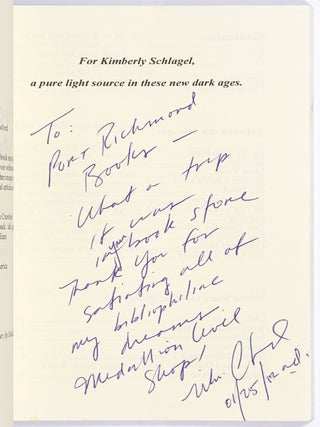 For Kimberly Schlagel,
a pure light source in these new dark ages.
To:
Port Richmond
Books —
What a trip
it was
in your book store
Thank you for
satiating all of
my bibliophiline
dreams.
Medallion level
Shop!
01/25/12 a.d.